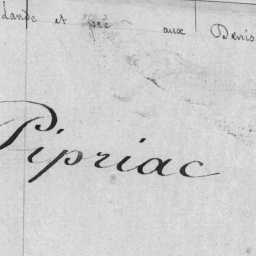 Lande et pré aux Denis
Pipriac